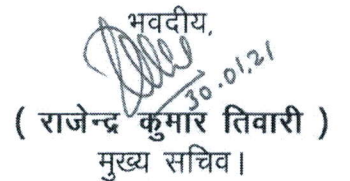 भवदीय,
30.01.21
( राजेन्द्र कुमार तिवारी )
मुख्य सचिव।